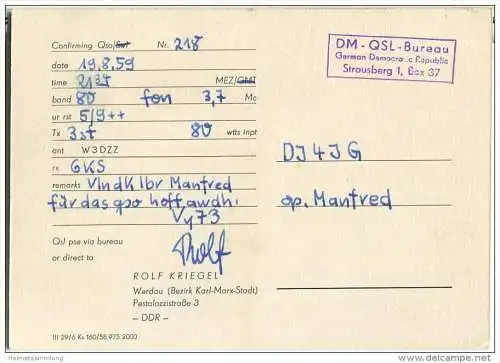 Confirming Qso/Swl Nr. 218
DM - QSL - Bureau
German Democratic Republic
Strausberg 1, Box 37
date 19.8.59
time 2137 MEZ/GMT
band 80 fon 3,7 Mc
ur rst 5/9++
Tx 3st 80 wtts inpt
ant W3DZZ
rx 6KS
remarks VlndK lbr Manfred
für das qso hoff. awdh.
Vy 73
DJ4JG
op. Manfred
Qsl pse via bureau
or direct to
Rolf
ROLF KRIEGEL
Werdau (Bezirk Karl-Marx-Stadt)
Pestalozzistraße 3
– DDR –
III 29/6 Ks 160/58 975 2000